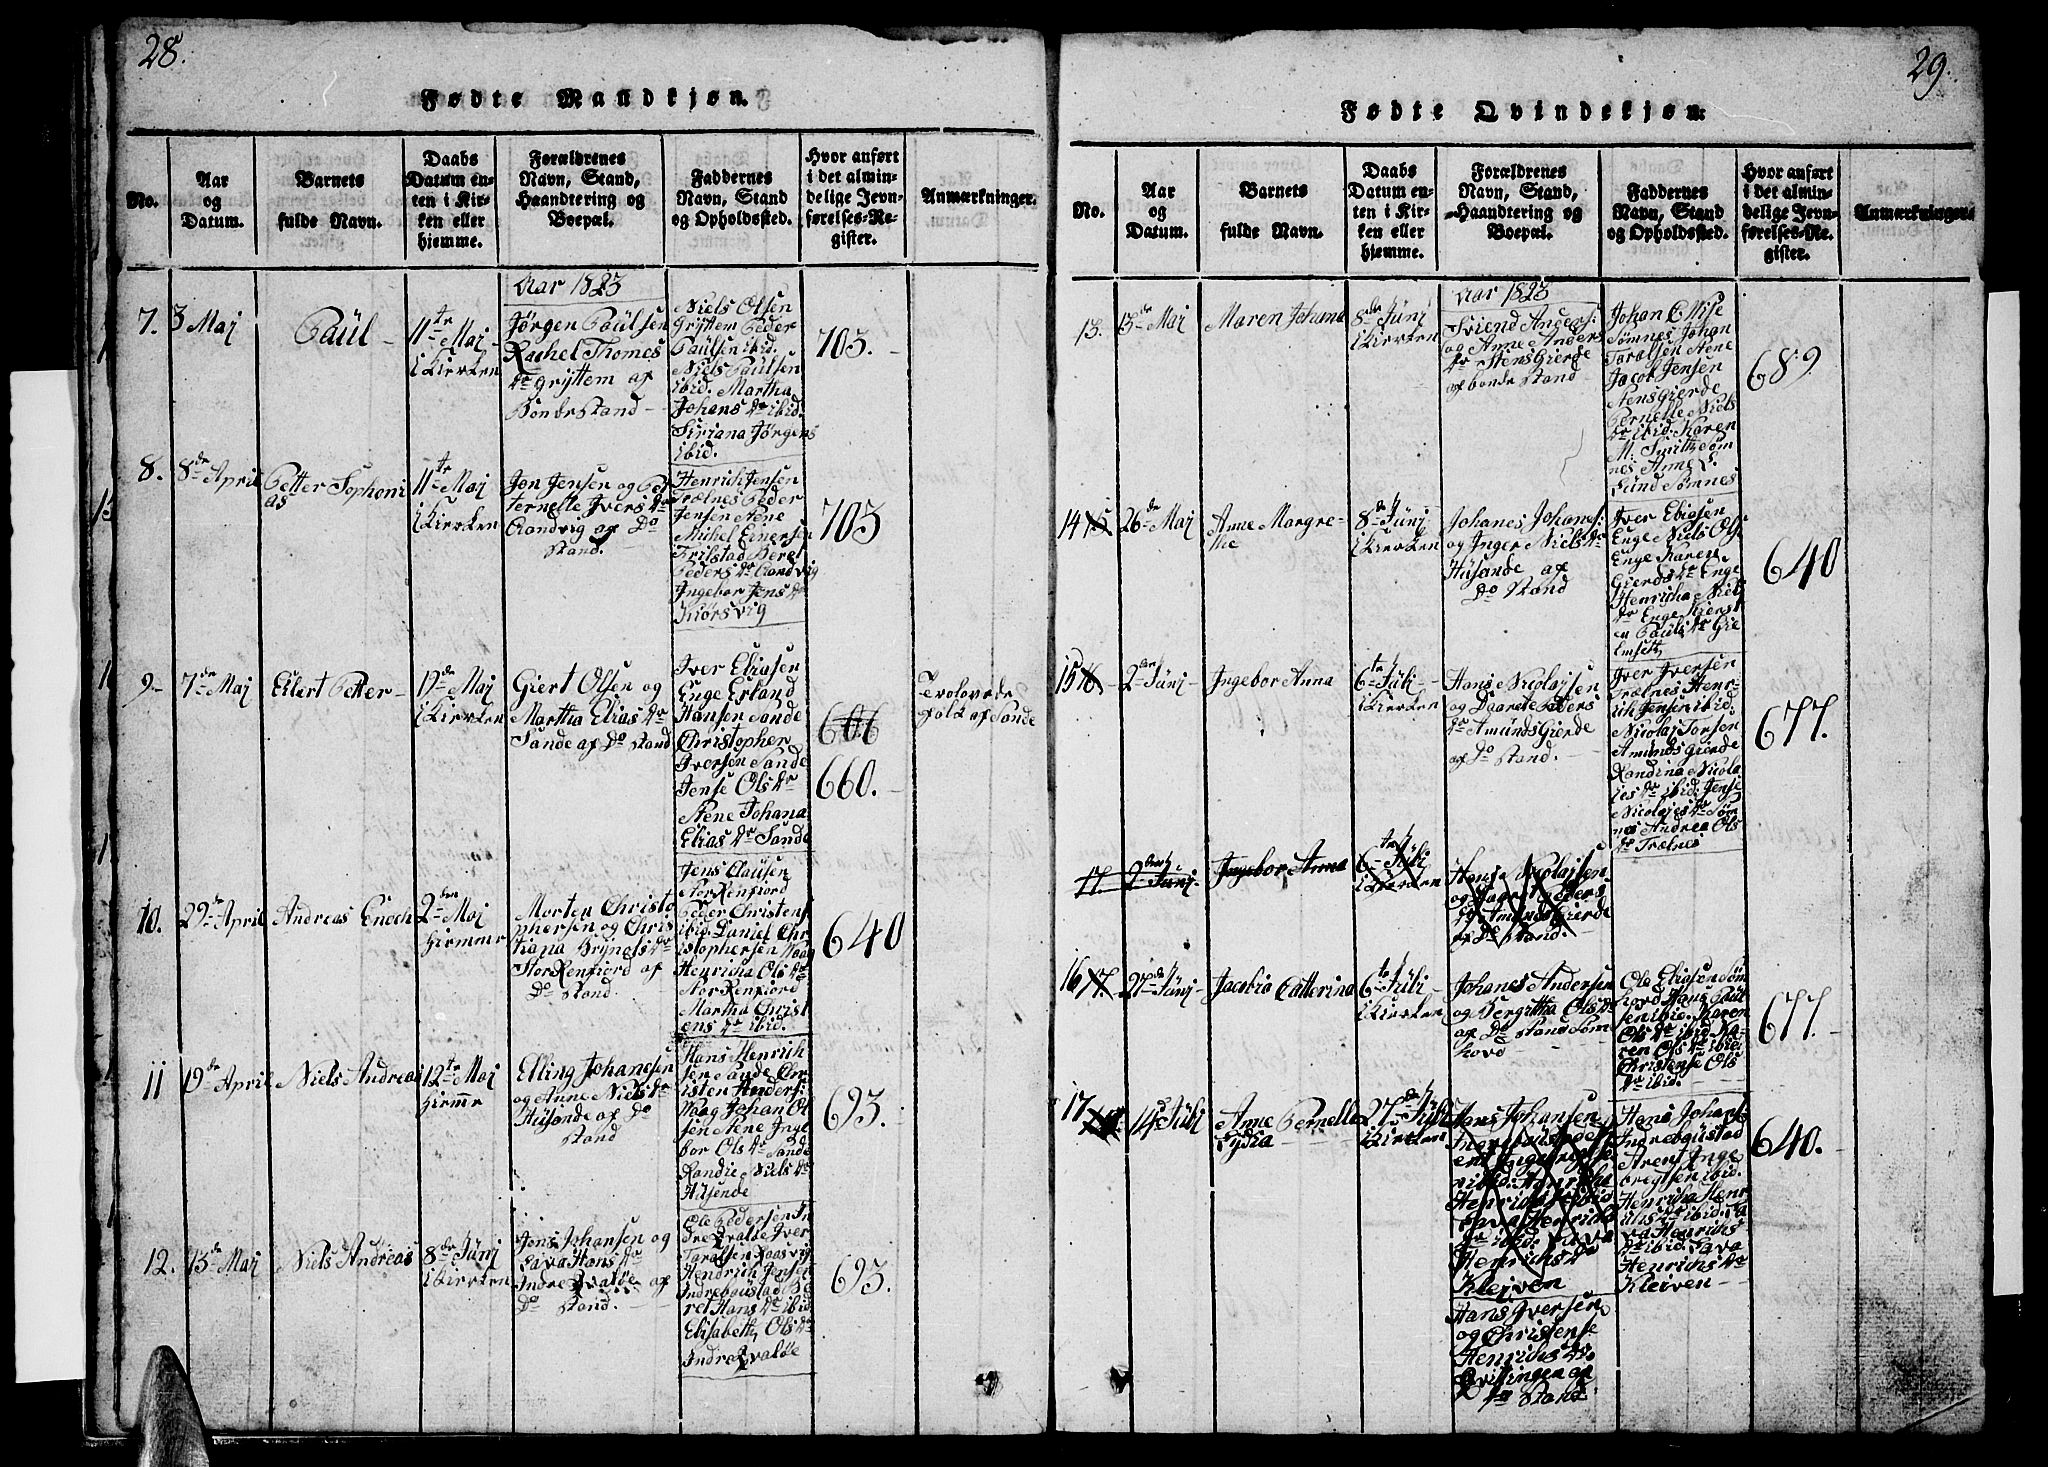 28.
Fødte Mandkjøn.
No.
Aar
og
Datum.
Barnets
fulde Navn.
Daabs
Datum en-
ten i Kir-
ken eller
hjemme.
Forældrenes
Navn, Stand,
Haandtering og
Boepæl.
Faddernes
Navn, Stand
og Opholdssted.
Hvor anført
i det almin-
delige Jevn-
førelses-Re-
gister.
Anmærkninger.
Aar 1823
7.
3 Maj
Paül
11te Maj
i Kirken
Jørgen Paülsen
Rachel Thomes
dr Gryttem af
Bondestand
Niels Olsen
Gryttem Peder
Paülsen ibid.
Niels Paülsen
ibid. Martha
Johans dr ibid.
Siriana Jørgens
ibid.
703.
8.
8de April
Petter Sophoni
as
11te Maj
i Kirken
Jon Jensen og Pet
ternelle Ivers dr
Randvig af Do
Stand.
Henrich Jensen
Trælnes Peder
Jensen
Michel Einersen
Berel
Peders dr Randvig
Ingebor Jens dr
703
9
7de Maj
Eilert Petter
19de Maj
i Kirken
Giert Olsen og
Martha Elias dr
Sande af Do Stand
Iver Eliasen
Enge Erland
Hansen Sande
Christopher
Iversen Sande
Jense Ols dr
Johana
Elias dr Sande
606
660.
af Sande
10.
29de April
Andreas Enoch
2den Maj
Hiemme
Morten Christo
phersen og Chris
tiana Brynels dr
Storrenfiord af
Do Stand.
Jens Clausen
Peder Christens
ibid. Daniel Chr
istophersen Waag
Henricha Ols dr
Martha Christ
ens dr ibid.
640
11
19de April
Niels Andreas
12te Maj
Hiemme
Elling Johanesen
og Anne Niels dr
Hüsende af Do
Stand
Hans Henrich
sen Sande Chr
isten Anders:
Waag Johan Ol
sen Inge
bor Ols dr Sande
Randie Niels dr
Hüsende
693.
12.
13de Maj
Niels Andreas
8de Jüni
i Kirken
Jons Johansen og
Hans dr
Indre Qvaløe af
Do Stand.
Ole Pedersen In
dre Qvaløe Iver
Taralsen
Hendrich Jensen
Indrebøüstad Be
ret Hans dr ibid
Elisabeth Ols dr
Indre Qvaløe
693.
29.
Fødte Qvindekjøn.
No.
Aar
og
Datum.
Barnets
fulde Navn.
Daabs
Datum en-
ten i Kir-
ken eller
hjemme.
Forældrenes
Navn, Stand,
Haandtering og
Boepæl.
Faddernes
Navn, Stand
og Opholdssted.
Hvor anført
i det almin-
delige Jevn-
førelses-Re-
gister.
Anmærkninger.
Aar 1823
13.
13de Maj
Maren Johana
8de Jüni
i Kirken
Sviend Anders:
og Anne Anders
dr Stensgierde
af bonde Stand
Johan
Sømnes Johan
Taralsen
Jacob Jensen
Stensgierde
Pernelle Niels
dr ibid. Karen
M. Smith Søm
nes Anne
Lünd Sømnes
689
14
26de Maj
Anne Margre-
the
8de Jüni
i Kirken
Johanes Johans:
og Inger Niels dr
Hüsende af
Do Stand
Iver Eliasen
Enge Niels Ols:
Enge Karen
Gierds dr Enge
Henricha Niels
dr Enge Kierst
en Paüls dr
640
15
2den Jüni
Ingebor Anna
6te Jüli
i Kirken
Hans Nicolajsen
og Daaret Peders
dr Amündsgierde
af Do Stand.
Iver Iversen
Trælnes Henr-
ich Jensen ibid.
Nicolaj Torsen
Amündsgierde
Randina Nicola
ies dr ibid. Jense
Nicolajes dr Søm
nes Andrea Ols
dr Trælnes
677.
17.
2den Jüni
Ingebor Anna
6te Jüli
i Kirken
Hans Nicolajsen
og Daaret Peders
dr Amündsgierde
af Do Stand.
16
17.
27de Jüni
Jacobia Catterina
6te Jüli
i Kirken
Johanes Andersen
og Bergitha Ols dr
af Do Stand Søm
hovd
Ole Eliasen Søm
hovd Hans Paül
sen ibid. Karen
Ols dr ibid. Ka-
ren Ols dr ibid.
Christense Ols
dr ibid.
677.
17
14de Jüli
Anne Pernelle
Lydia
27de Jüli
i Kirken
Hans Johansen
Indrebøüstad
Henrichs
Kleiven
Hans Iversen
og Christense
Henrichs dr
af
Do Stand
Hans Johans:
Indrebøüstad
Arent Inge
bregtsen ibid.
Henricha Henr
ichs dr ibid.
Henrichs
dr ibid.
Henrichs dr
Kleiven
640.